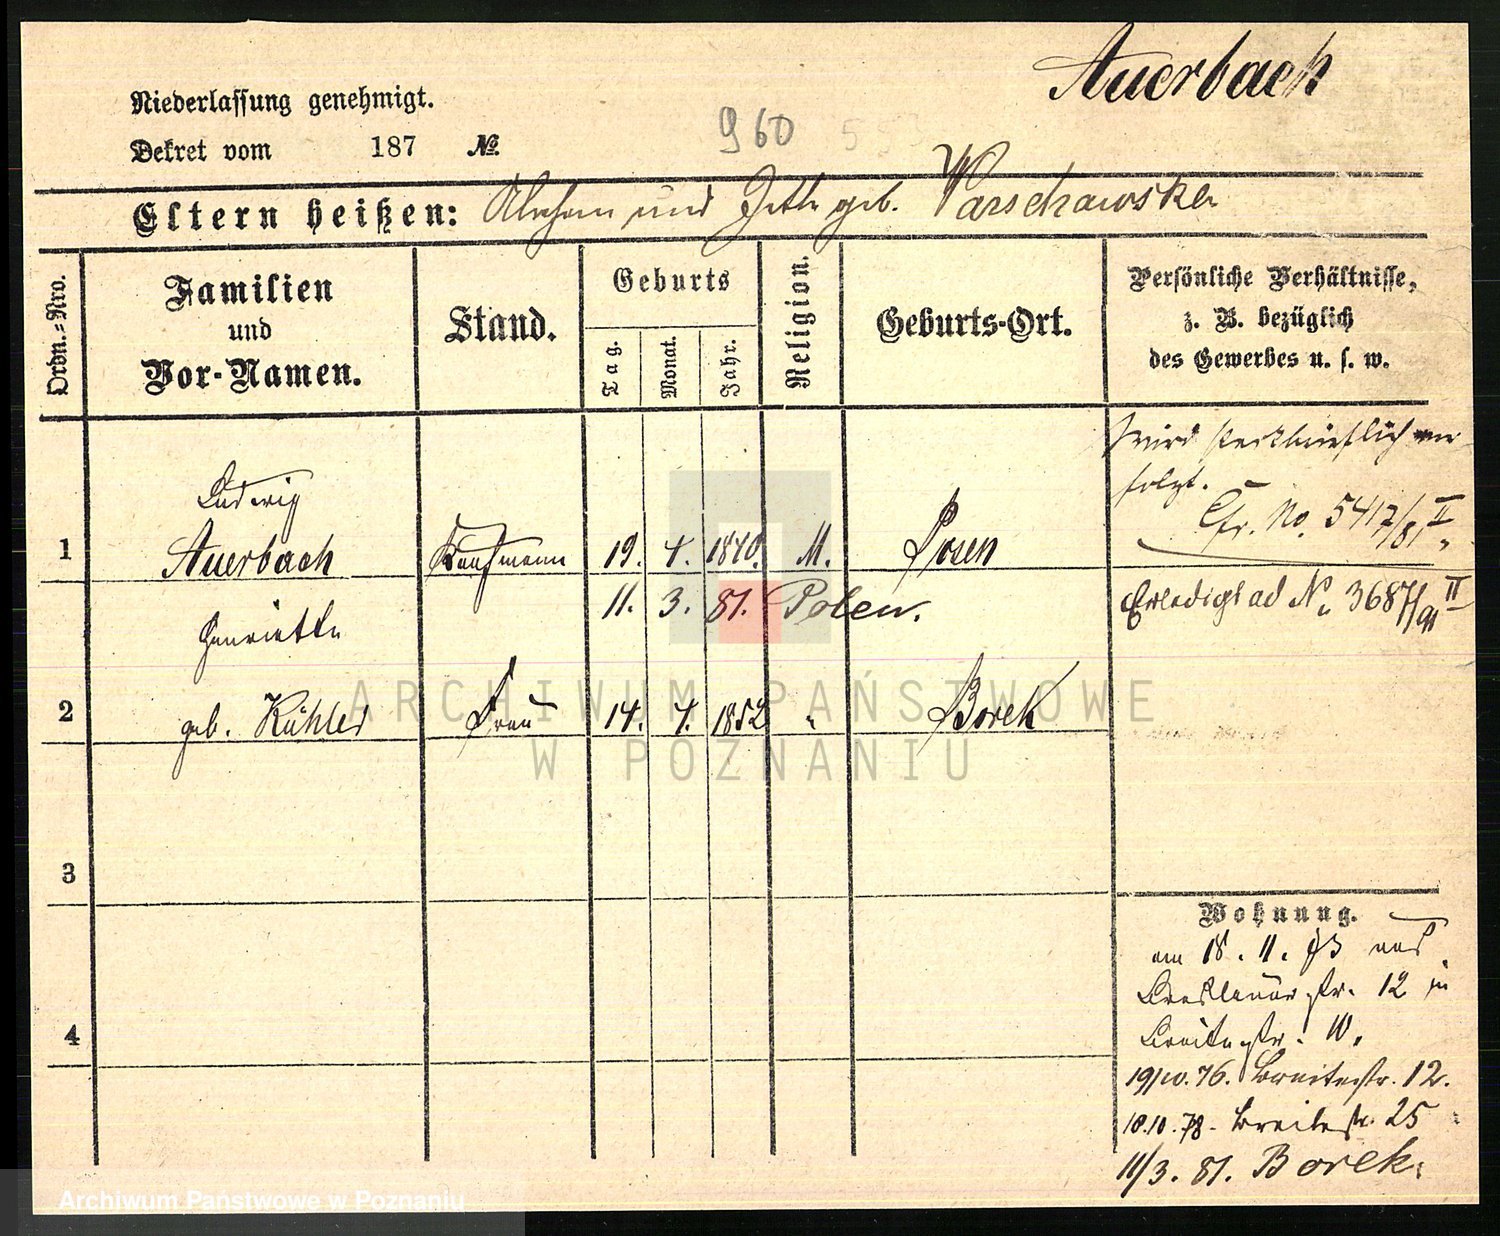 Auerbach
Niederlassung genehmigt.
Dekret vom 187 No.
960
Eltern heißen: Abraham und Jette geb. Warschawska
Ordn.=Nro.
Familien
und
Vor-Namen.
Stand.
Geburts
Tag.
Monat.
Jahr.
Religion.
Geburts-Ort.
Persönliche Verhältnisse,
z. B. bezüglich
des Gewerbes u. s. w.
1
Ludwig
Auerbach
Kaufmann
19. 4. 1840. M. Posen
wird steckbrieflich ver
folgt.
Cfr. No. 5417/81 II
11. 3. 81. Polen.
Erledigt ad No 3687/91 II
2
Henriette
geb. Kühler
Frau
14. 4. 1852 " Borek
3
4
Wohnung.
am 18. 11. 73 aus
Breslauer str. 12 in
Breite str. 10.
19/10. 76. Breitestr. 12.
18.10.78. Breitestr. 25
11/3. 81. Borek.
ARCHIWUM PAŃSTWOWE
W POZNANIU
Archiwum Państwowe w Poznaniu